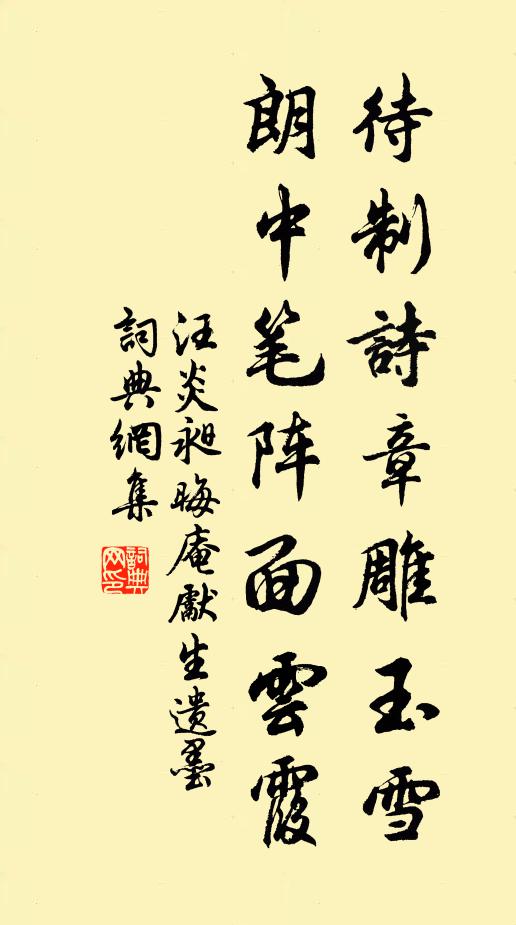 待制詩章雕玉雪
朗中笔阵面雲霞
汪炎昶晦庵獻生遺墨
詞典網集
詞典网印